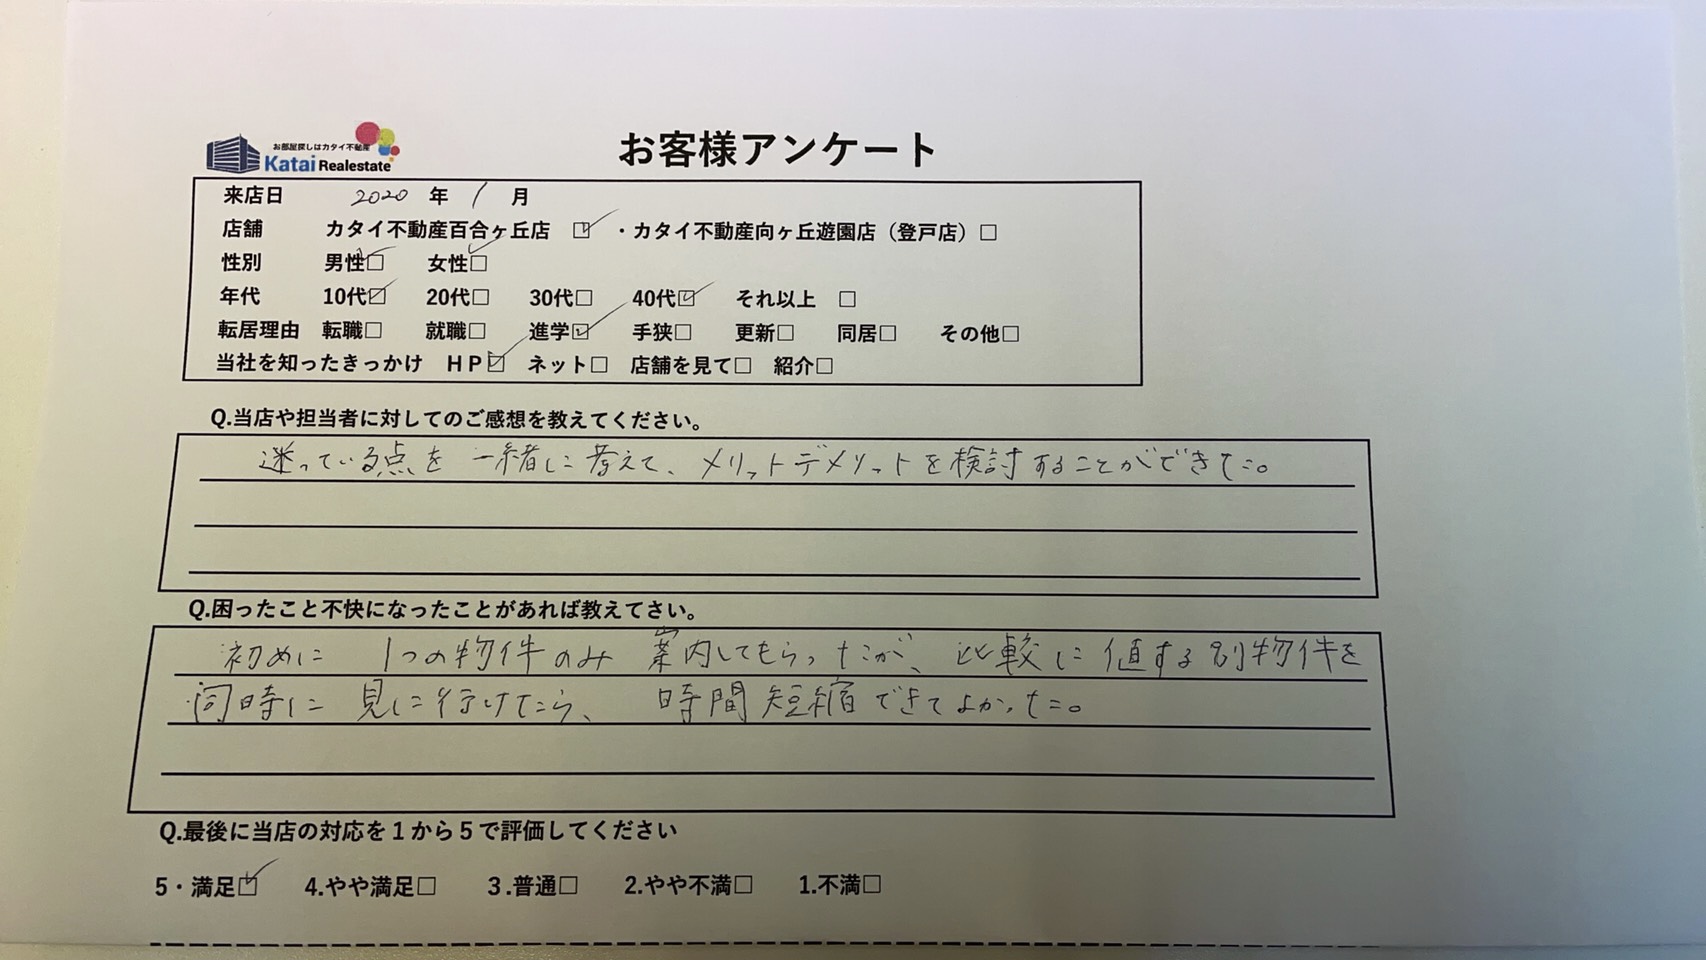 お部屋探しはカタイ不動産
Katai Realestate
お客様アンケート
来店日 2020 年 1 月
店舗 カタイ不動産百合ヶ丘店 ☑ ・カタイ不動産向ヶ丘遊園店（登戸店）□
性別 男性☑ 女性☑
年代 10代☑ 20代□ 30代□ 40代☑ それ以上 □
転居理由 転職□ 就職□ 進学☑ 手狭□ 更新□ 同居□ その他□
当社を知ったきっかけ ＨＰ☑ ネット□ 店舗を見て□ 紹介□
Q.当店や担当者に対してのご感想を教えてください。
迷っている点を一緒に考えて、メリットデメリットを検討することができた。
Q.困ったこと不快になったことがあれば教えてさい。
初めに 1つの物件のみ 案内してもらったが、比較に値する別物件を
同時に見に行けたら、時間短縮できてよかった。
Q.最後に当店の対応を１から５で評価してください
5・満足☑ 4.やや満足□ ３.普通□ 2.やや不満□ 1.不満□